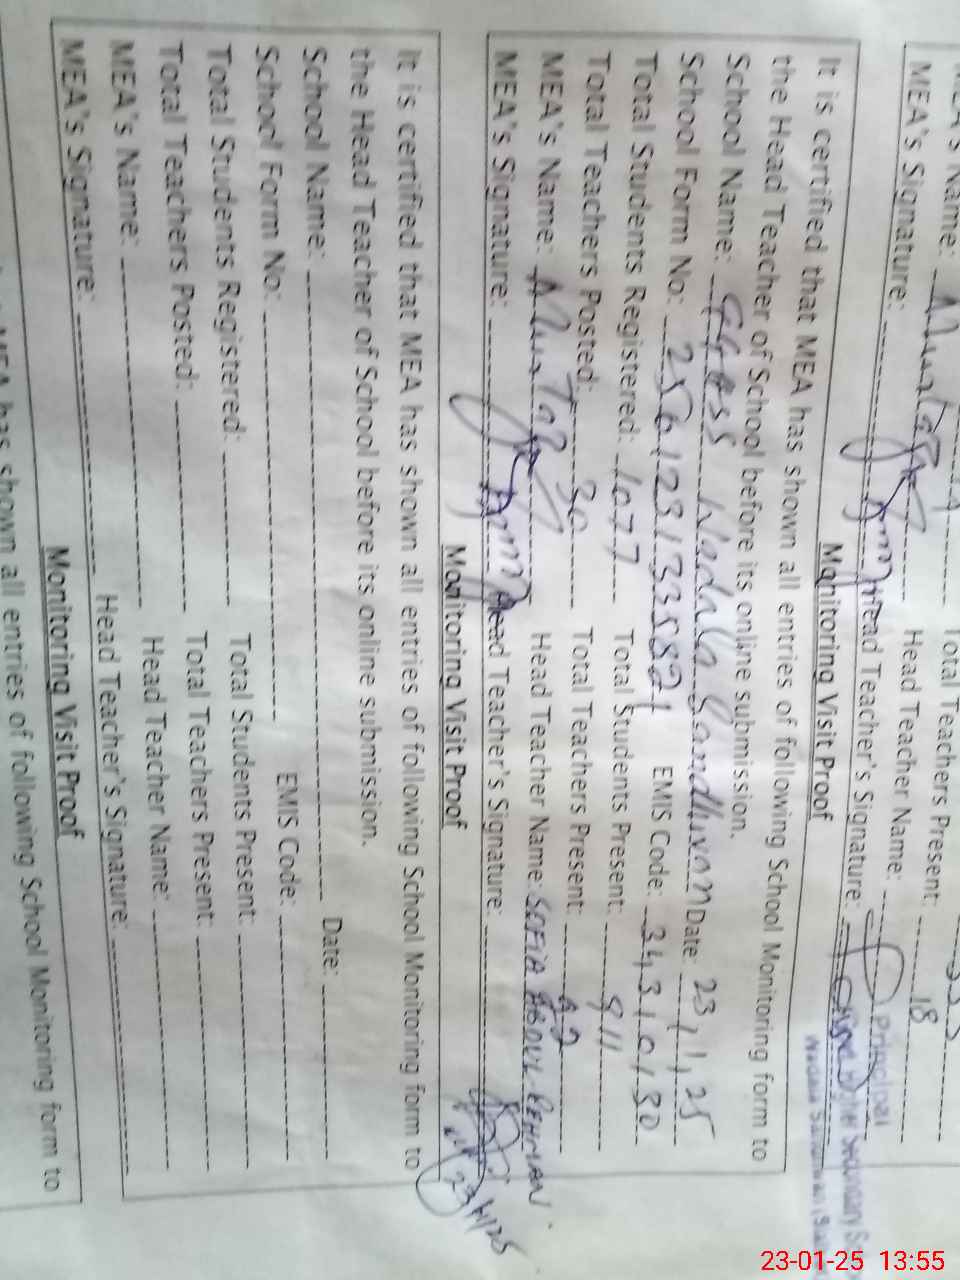 MEA's Name: Murtaza Head Teacher Name:
Total Teachers Present: 18
MEA's Signature: Head Teacher's Signature:
Principal
Higher Secondary
Monitoring Visit Proof
It is certified that MEA has shown all entries of following School Monitoring form to
the Head Teacher of School before its online submission.
School Name: GGHSS Date: 23,1,25
School Form No: EMIS Code: 34310130
Total Students Registered: 1077 Total Students Present: 911
Total Teachers Posted: 30 Total Teachers Present:
MEA's Name: Murtaza Head Teacher Name: SOFIA ABDUL-REHMAN
MEA's Signature: Head Teacher's Signature:
23/1/25
Monitoring Visit Proof
It is certified that MEA has shown all entries of following School Monitoring form to
the Head Teacher of School before its online submission.
School Name: Date:
School Form No: EMIS Code:
Total Students Registered: Total Students Present:
Total Teachers Posted: Total Teachers Present:
MEA's Name: Head Teacher Name:
MEA's Signature: Head Teacher's Signature:
Monitoring Visit Proof
MEA has shown all entries of following School Monitoring form to
23-01-25 13:55